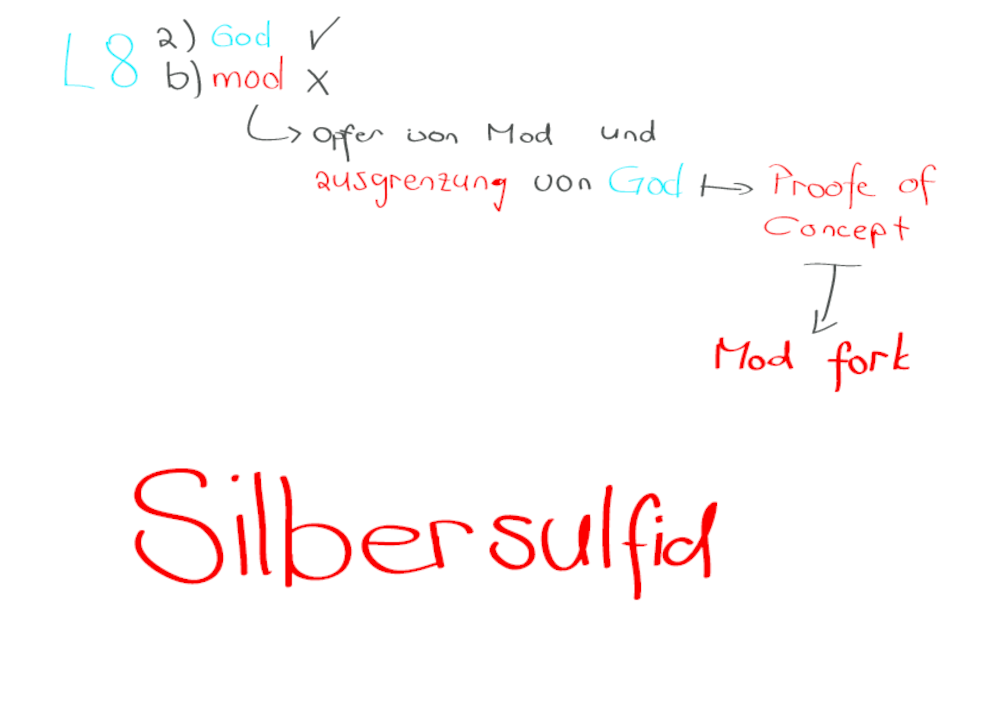 L8 a) God ✓
b) mod x
↳ opfer von Mod und
ausgrenzung von God ↦ Proofe of
Concept
↓
Mod fork
Silbersulfid